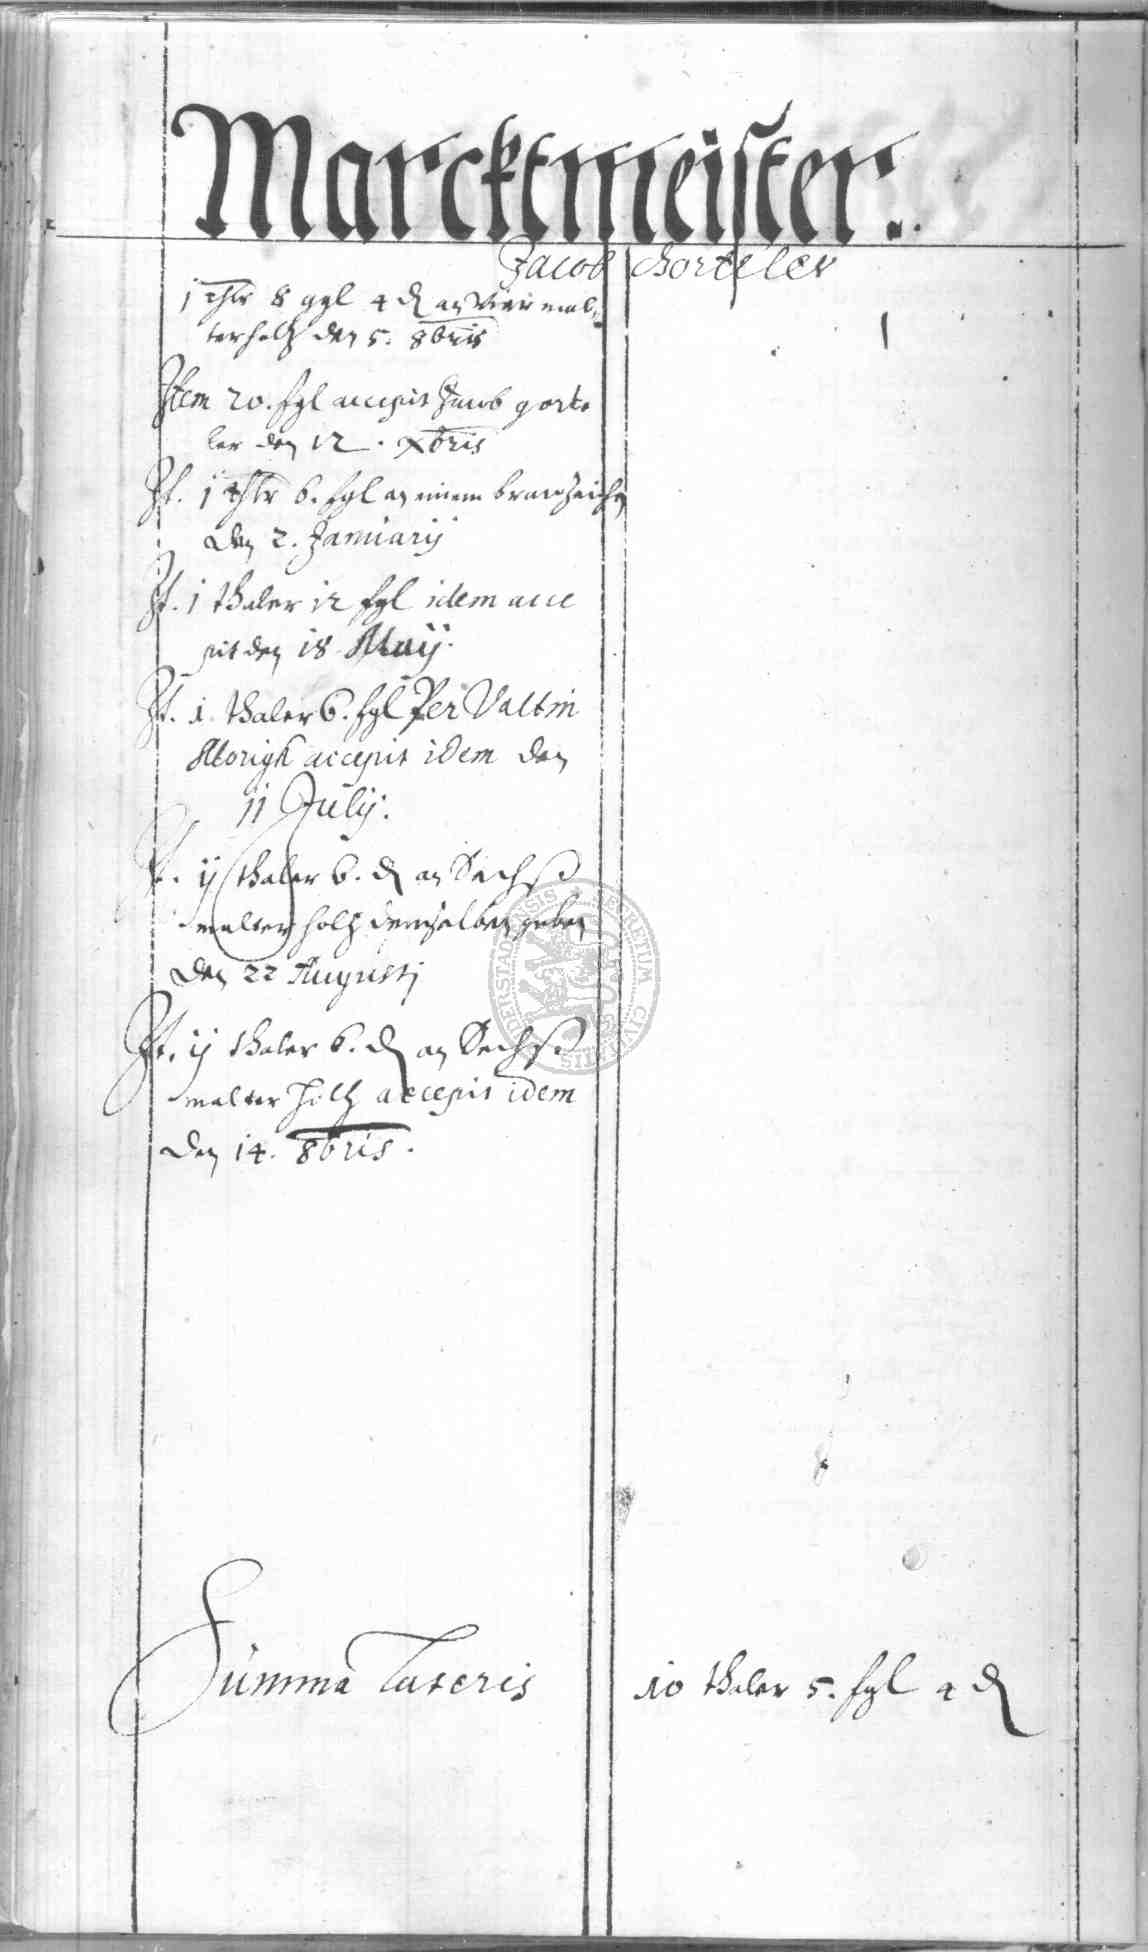 Marcktmeister.
Jacob Gorteler
1 thlr 8 ggl 4 ₰ an Vier mal-
terholtz den 5. 8bris
Item 20. fgl accepit Jacob gorte
ler den 12. Xbris
It. ij thlr 6. fgl an einem brawzeichen
den 2. Januarij
It. 1 thaler 12 fgl idem acce
pit den 18 Maij.
It. 1. thaler 6. fgl Per Valtin
Morigk accepit idem den
11 Julij.
It. ij thaler 6. ₰ an Sechß
malter holtz demselben geben
den 22 Augusti
It. ij thaler 6. ₰ an Sechß
malter holtz accepit idem
den 14. 8bris.
Summa Lateris 10 thaler 5. fgl 4 ₰
DERSTADENSIS SECRETUM CIVITATIS